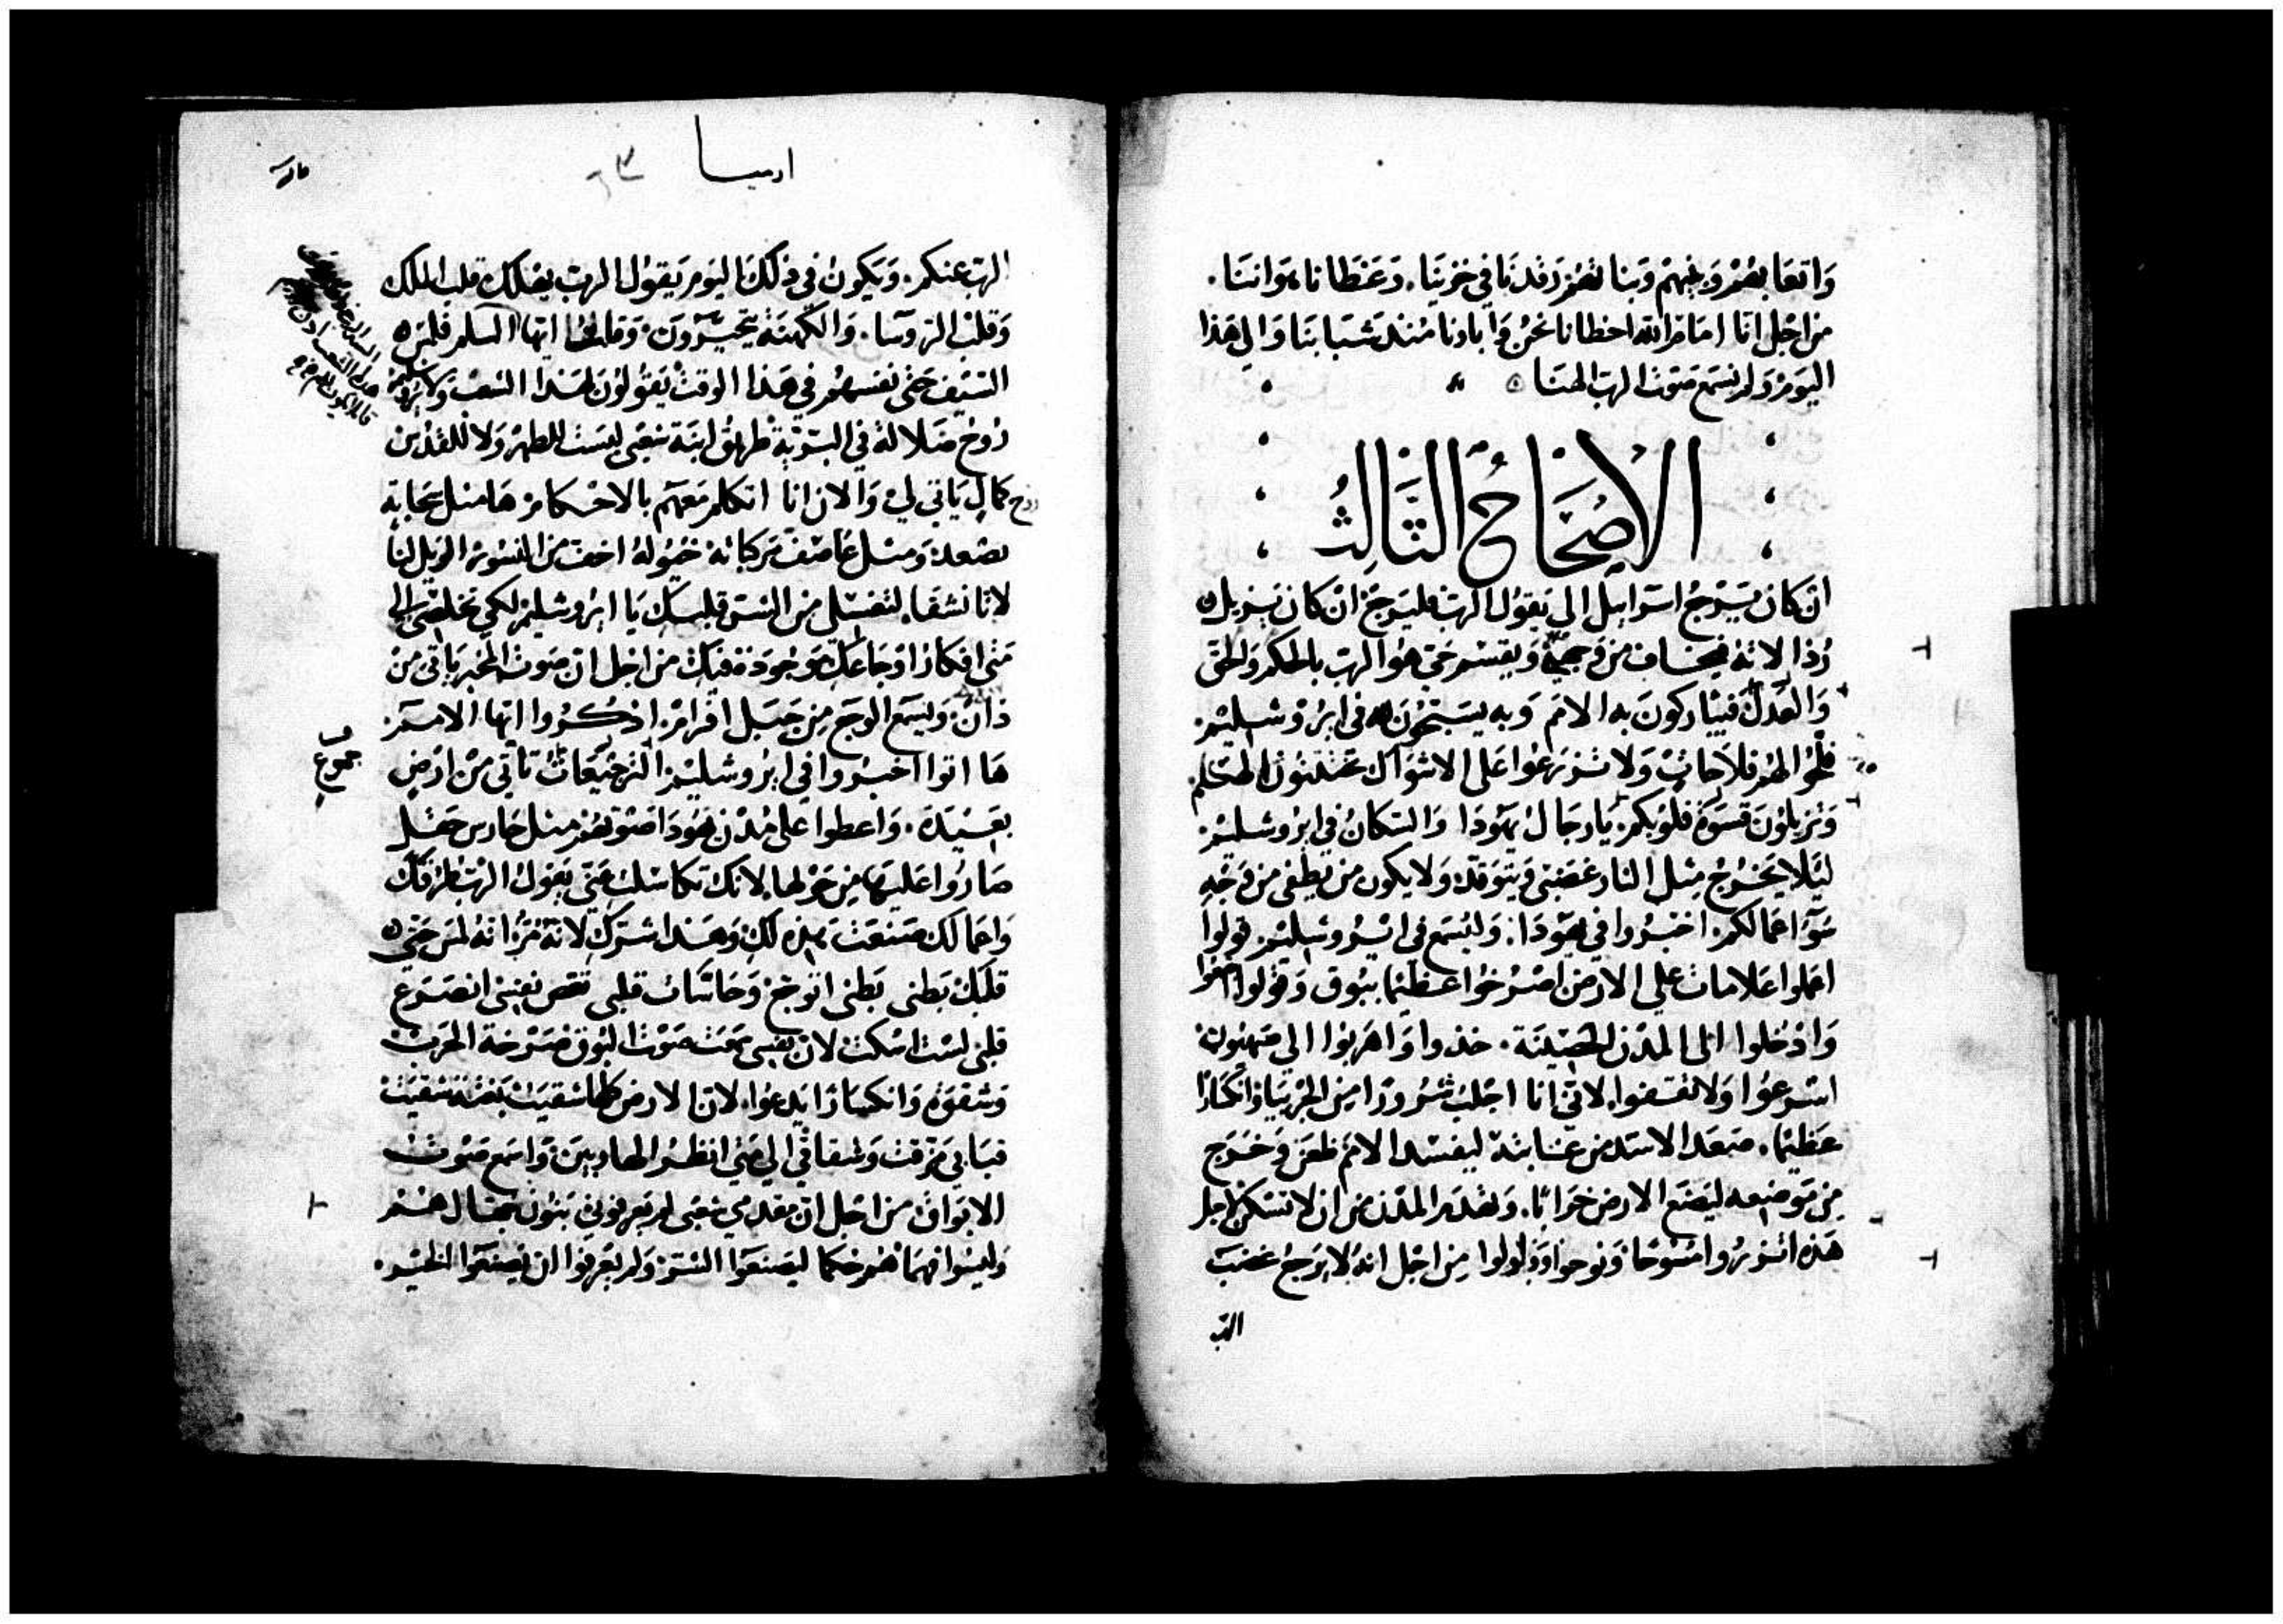 واتعابهم وبنيهم وبناتهم رقدنا في خزينا. وغطانا هواننا.
من اجل انا امام الله اخطانا نحن وابادنا منذ شبابنا والي هذا
اليوم ولم نسمع صوت الرب الهنا
الاصحاح الثالث
ان كان يرجع اسراييل الي يقول الرب فليرجع ان كان يزيل
رذالاته فيخاف من وجهي ويقسم حي هو الرب بالحكم والحق
والعدل فيباركون به الامم وبه يسبحون لله في ايروشليم
ولا تزرعوا علي الاشواك
وتزيلون قسوة قلوبكم يا رجال يهودا والسكان في ايروشليم
ليلا يخرج مثل النار غضبي ويتوقد ولا يكون من يطفي من وجه
سوء اعمالكم. اخبروا في يهودا. وليسمع في ايروشليم قولوا
اعملوا علامات علي الارض اصرخوا عظيما ببوق وقولوا
وادخلوا الي المدن الحصينة. خذوا واهربوا الي صهيون
اسرعوا ولا تقفوا. لاني انا اجلب شرورا من الجربيا وانكسارا
عظيما. صعد الاسد من غابته ليفسد الامم ظعن وخرج
من موضعه ليضع الارض خرابا. وتهدم المدن من ان لا تسكن اجل
هذه اتزروا مسوحا ونوحوا وولولوا من اجل انه لا يرجع غضب
الرب
ارميا
الرب عنكم. ويكون في ذلك اليوم يقول الرب يهلك قلب الملك
وقلب الروسا. والكهنة يتحيرون. وقايلها ايها السلم فلمس
السيف حتي نفسهم في هذا الوقت يقولون لهذا الشعب ولايروشليم
روح ضلالة في البرية طريق ابنة شعبي ليست للطهر ولا للقدس
روح كمال ياتي لي والان انا اتكلم معهم بالاحكام ها مثل سحابة
يصعد ومثل عاصف مركباته خيوله اخف من النسور الويل لنا
لانا نشقا. لتغسلي من الشر قلبك يا ايروشليم لكي تخلصي الي
متي افكار اوجاعك موجودة فيك من اجل ان صوت المخبر ياتي من
دان وليسمع الوجع من جبل افرام. اذكروا ايها الامم
ها اتوا اخبروا في ايروشليم الرجيعات تاتي من ارض
جموع
بعيدة. واعطوا علي مدن يهودا صوتهم مثل حارس حقل
صاروا عليها من حولها. لانك تكاسلت عني يقول الرب طرقك
واعمالك صنعت هذه لك وهذا شرك لانه مر انه لمس حتي
قلبك بطني بطني اتوجع وحاسات قلبي تغص نفسي انصرع
قلبي لست اسكت لان نفسي سمعت صوت البوق صرخة الحرب
وشقوة وانكسارا يدعوا. لان الارض كلها شقيت بغتة شقيت
قبابي تمزقت وشقاقي الي متي انظر الهاربين واسمع صوت
الابواق من اجل ان مقدمي شعبي لم يعرفوني بنون جهال هم
وليسوا فهما هم حكما ليصنعوا الشر ولم يعرفوا ان يصنعوا الخير.